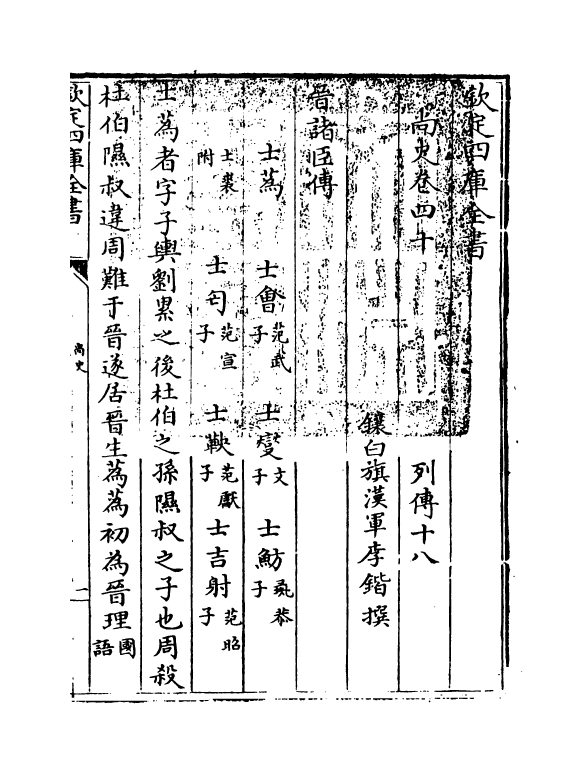 欽定四庫全書
尚史卷四十 列傳十八
鑲白旗漢軍李鍇撰
晉諸臣傳
士蒍 士會范武子 士燮文子 士魴彘恭子
士附 士匄范宣子 士鞅范獻子 士吉射范昭子
士蒍者字子輿劉累之後杜伯之孫隰叔之子也周殺
杜伯隰叔違周難于晉遂居晉生蒍蒍初為晉理國語
欽定四庫全書 尚史 一